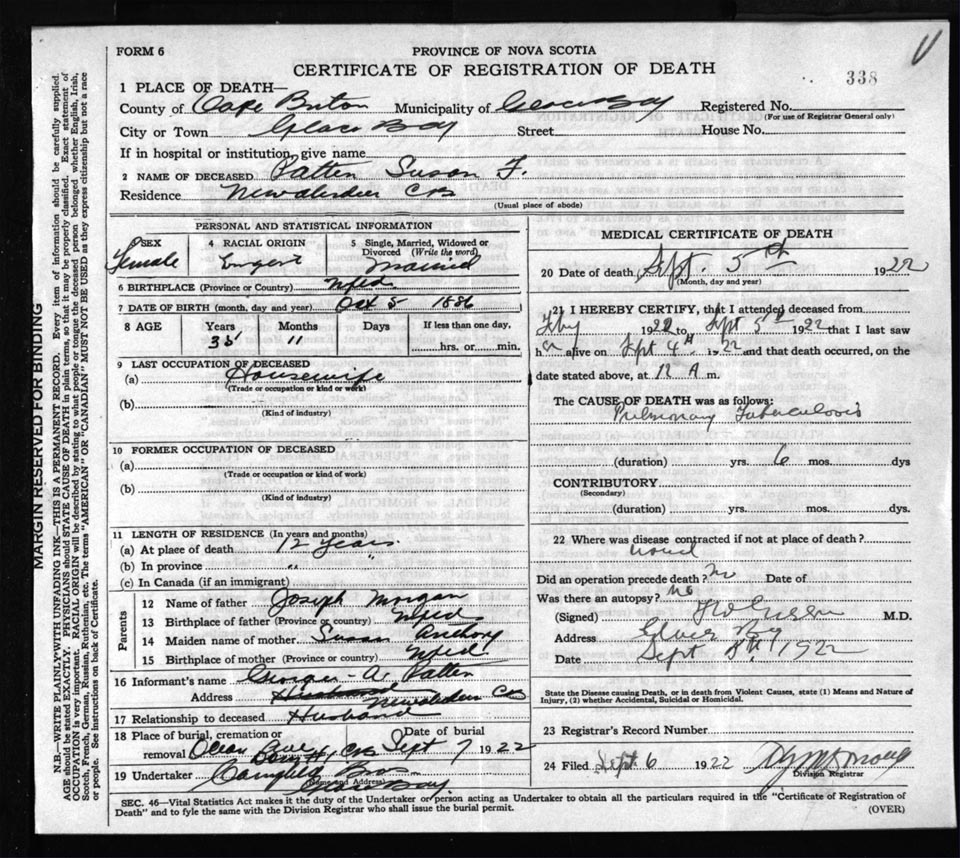 FORM 6
PROVINCE OF NOVA SCOTIA
CERTIFICATE OF REGISTRATION OF DEATH
338
1 PLACE OF DEATH—
County of Cape Breton Municipality of Glace Bay Registered No.
(For use of Registrar General only)
City or Town Glace Bay Street House No.
If in hospital or institution, give name
2 NAME OF DECEASED Patten Susan F.
Residence Newaberdeen CB
(Usual place of abode)
PERSONAL AND STATISTICAL INFORMATION
3 SEX Female
4 RACIAL ORIGIN
5 Single, Married, Widowed or Divorced (Write the word) Married
6 BIRTHPLACE (Province or Country) Nfld.
7 DATE OF BIRTH (month, day and year) Oct 5 1886
8 AGE Years 35 Months 11 Days If less than one day, hrs. or min.
9 LAST OCCUPATION OF DECEASED
(a) Housewife
(Trade or occupation or kind or work)
(b)
(Kind of industry)
10 FORMER OCCUPATION OF DECEASED
(a)
(Trade or occupation or kind of work)
(b)
(Kind of industry)
11 LENGTH OF RESIDENCE (In years and months)
(a) At place of death 12 years
(b) In province " "
(c) In Canada (if an immigrant)
Parents
12 Name of father Joseph Morgan
13 Birthplace of father (Province or country) Nfld
14 Maiden name of mother Susan
15 Birthplace of mother (Province or country) Nfld.
16 Informant's name George A. Patten
Address Husband Newaberdeen CB
17 Relationship to deceased Husband
18 Place of burial, cremation or removal Date of burial
CB Sept 7 1922
19 Undertaker Campbell Bros
(Name and Address)
Glace Bay.
MEDICAL CERTIFICATE OF DEATH
20 Date of death, Sept. 5th 1922
(Month, day and year)
21 I HEREBY CERTIFY, that I attended deceased from
1922 to Sept 5th 1922 that I last saw
her alive on Sept 4th 1922 and that death occurred, on the
date stated above, at 12 A m.
The CAUSE OF DEATH was as follows:
Pulmonary Tuberculosis
(duration) yrs. 6 mos. dys
CONTRIBUTORY
(Secondary)
(duration) yrs. mos. dys.
22 Where was disease contracted if not at place of death?
Did an operation precede death? No Date of
Was there an autopsy? No
(Signed) M.D.
Address Glace Bay
Date Sept 1922
State the Disease causing Death, or in death from Violent Causes, state (1) Means and Nature of
Injury, (2) whether Accidental, Suicidal or Homicidal.
23 Registrar's Record Number
24 Filed Sept. 6 1922
Division Registrar
SEC. 46—Vital Statistics Act makes it the duty of the Undertaker or person acting as Undertaker to obtain all the particulars required in the "Certificate of Registration of
Death" and to fyle the same with the Division Registrar who shall issue the burial permit.
(OVER)
MARGIN RESERVED FOR BINDING
N.B.—WRITE PLAINLY WITH UNFADING INK—THIS IS A PERMANENT RECORD. Every item of information should be carefully supplied.
AGE should be stated EXACTLY. PHYSICIANS should STATE CAUSE OF DEATH in plain terms, so that it may be properly classified. Exact statement of
OCCUPATION is very important. RACIAL ORIGIN will be described by stating to what people or tongue the deceased person belonged whether English, Irish,
Scotch, French, German, Russian, Ruthenian, etc. The terms "AMERICAN" OR "CANADIAN" MUST NOT BE USED as they express citizenship but not a race
or people. See instructions on back of Certificate.